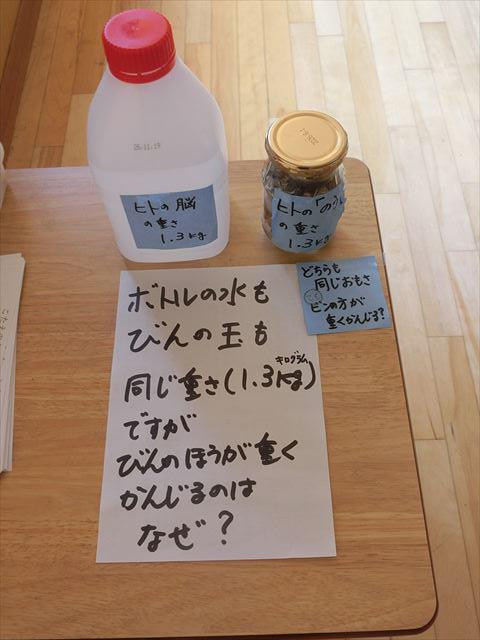 ヒトの脳
の重さ
1.3kg
ヒトの「のう」
の重さ
1.3kg
どちらも
同じおもさ
ビンの方が
重くかんじる?
ボトルの水も
びんの玉も
キログラム
同じ重さ(1.3kg)
ですが
びんのほうが重く
かんじるのは
なぜ?